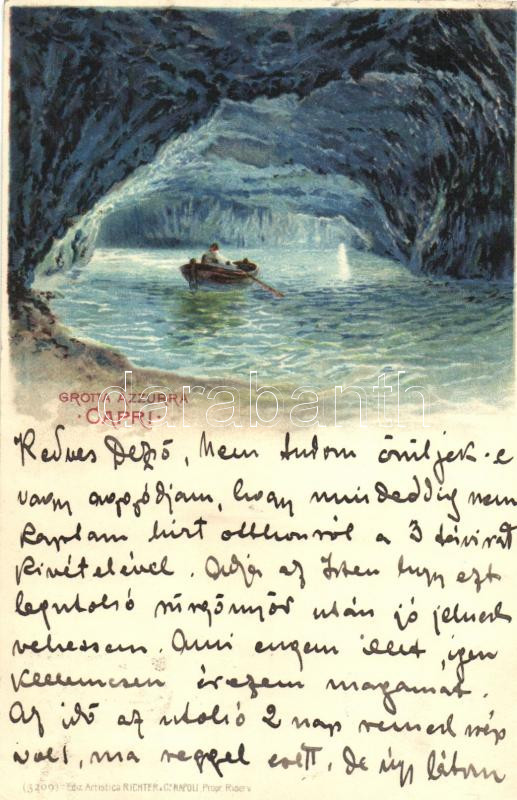 GROTTA AZZURRA
· CAPRI ·
darabanth.com
Kedves Dezső, Nem tudom örüljek-e
vagy aggódjam, hogy mindeddig nem
kaptam hírt otthonról a 3 távirat
kivételével. Adja az Isten hogy ezt
legutolsó sürgönyöd után jó jelnek
vehessem. Ami engem illet, igen
kellemesen érezem magamat.
Az idő az utolsó 2 nap remek szép
volt, ma reggel esett. De úgy látom
(3209) - Ediz. Artistica RICHTER & Co. NAPOLI, Propr. Riserv.